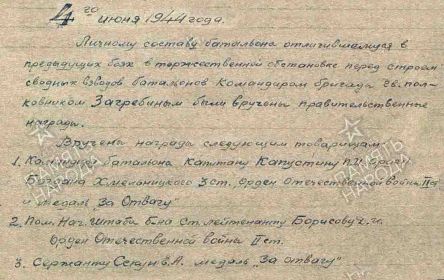 4го июня 1944 года.
Личному составу батальона отличившемуся в
предыдущих боях в торжественной обстановке перед строем
сводных взводов батальонов командиром бригады гв. пол-
ковником Загребиным были вручены правительственные
награды.
Вручены награды следующим товарищам
1. Командиру батальона Капитану Капустину П.И. орден
Богдана Хмельницкого 3 ст. орден Отечественной войны IIст
и медаль "За Отвагу"
2. Пом. Нач. Штаба б-на Ст. лейтенанту Борисову
Орден Отечественной войны II ст.
3. Сержанту В.А. медаль "За отвагу"
ПАМЯТЬ
НАРОДА